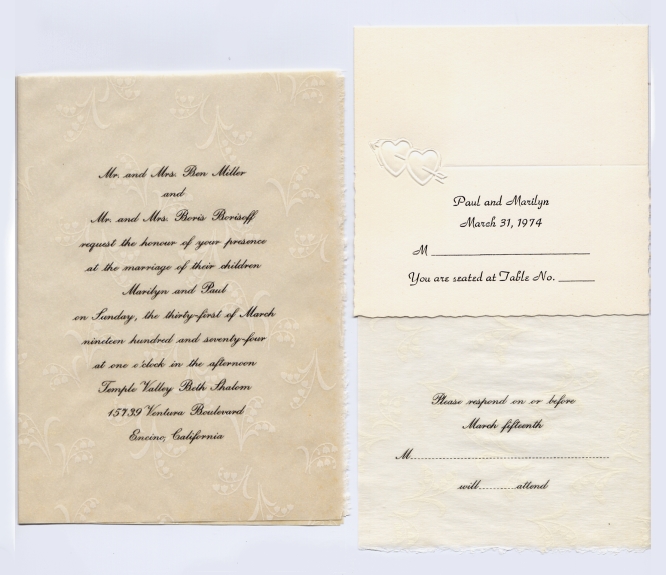 Mr. and Mrs. Ben Miller
and
Mr. and Mrs. Boris Borisoff
request the honour of your presence
at the marriage of their children
Marilyn and Paul
on Sunday, the thirty-first of March
nineteen hundred and seventy-four
at one o'clock in the afternoon
Temple Valley Beth Shalom
15739 Ventura Boulevard
Encino, California
Paul and Marilyn
March 31, 1974
M
You are seated at Table No.
Please respond on or before
March fifteenth
M
will attend